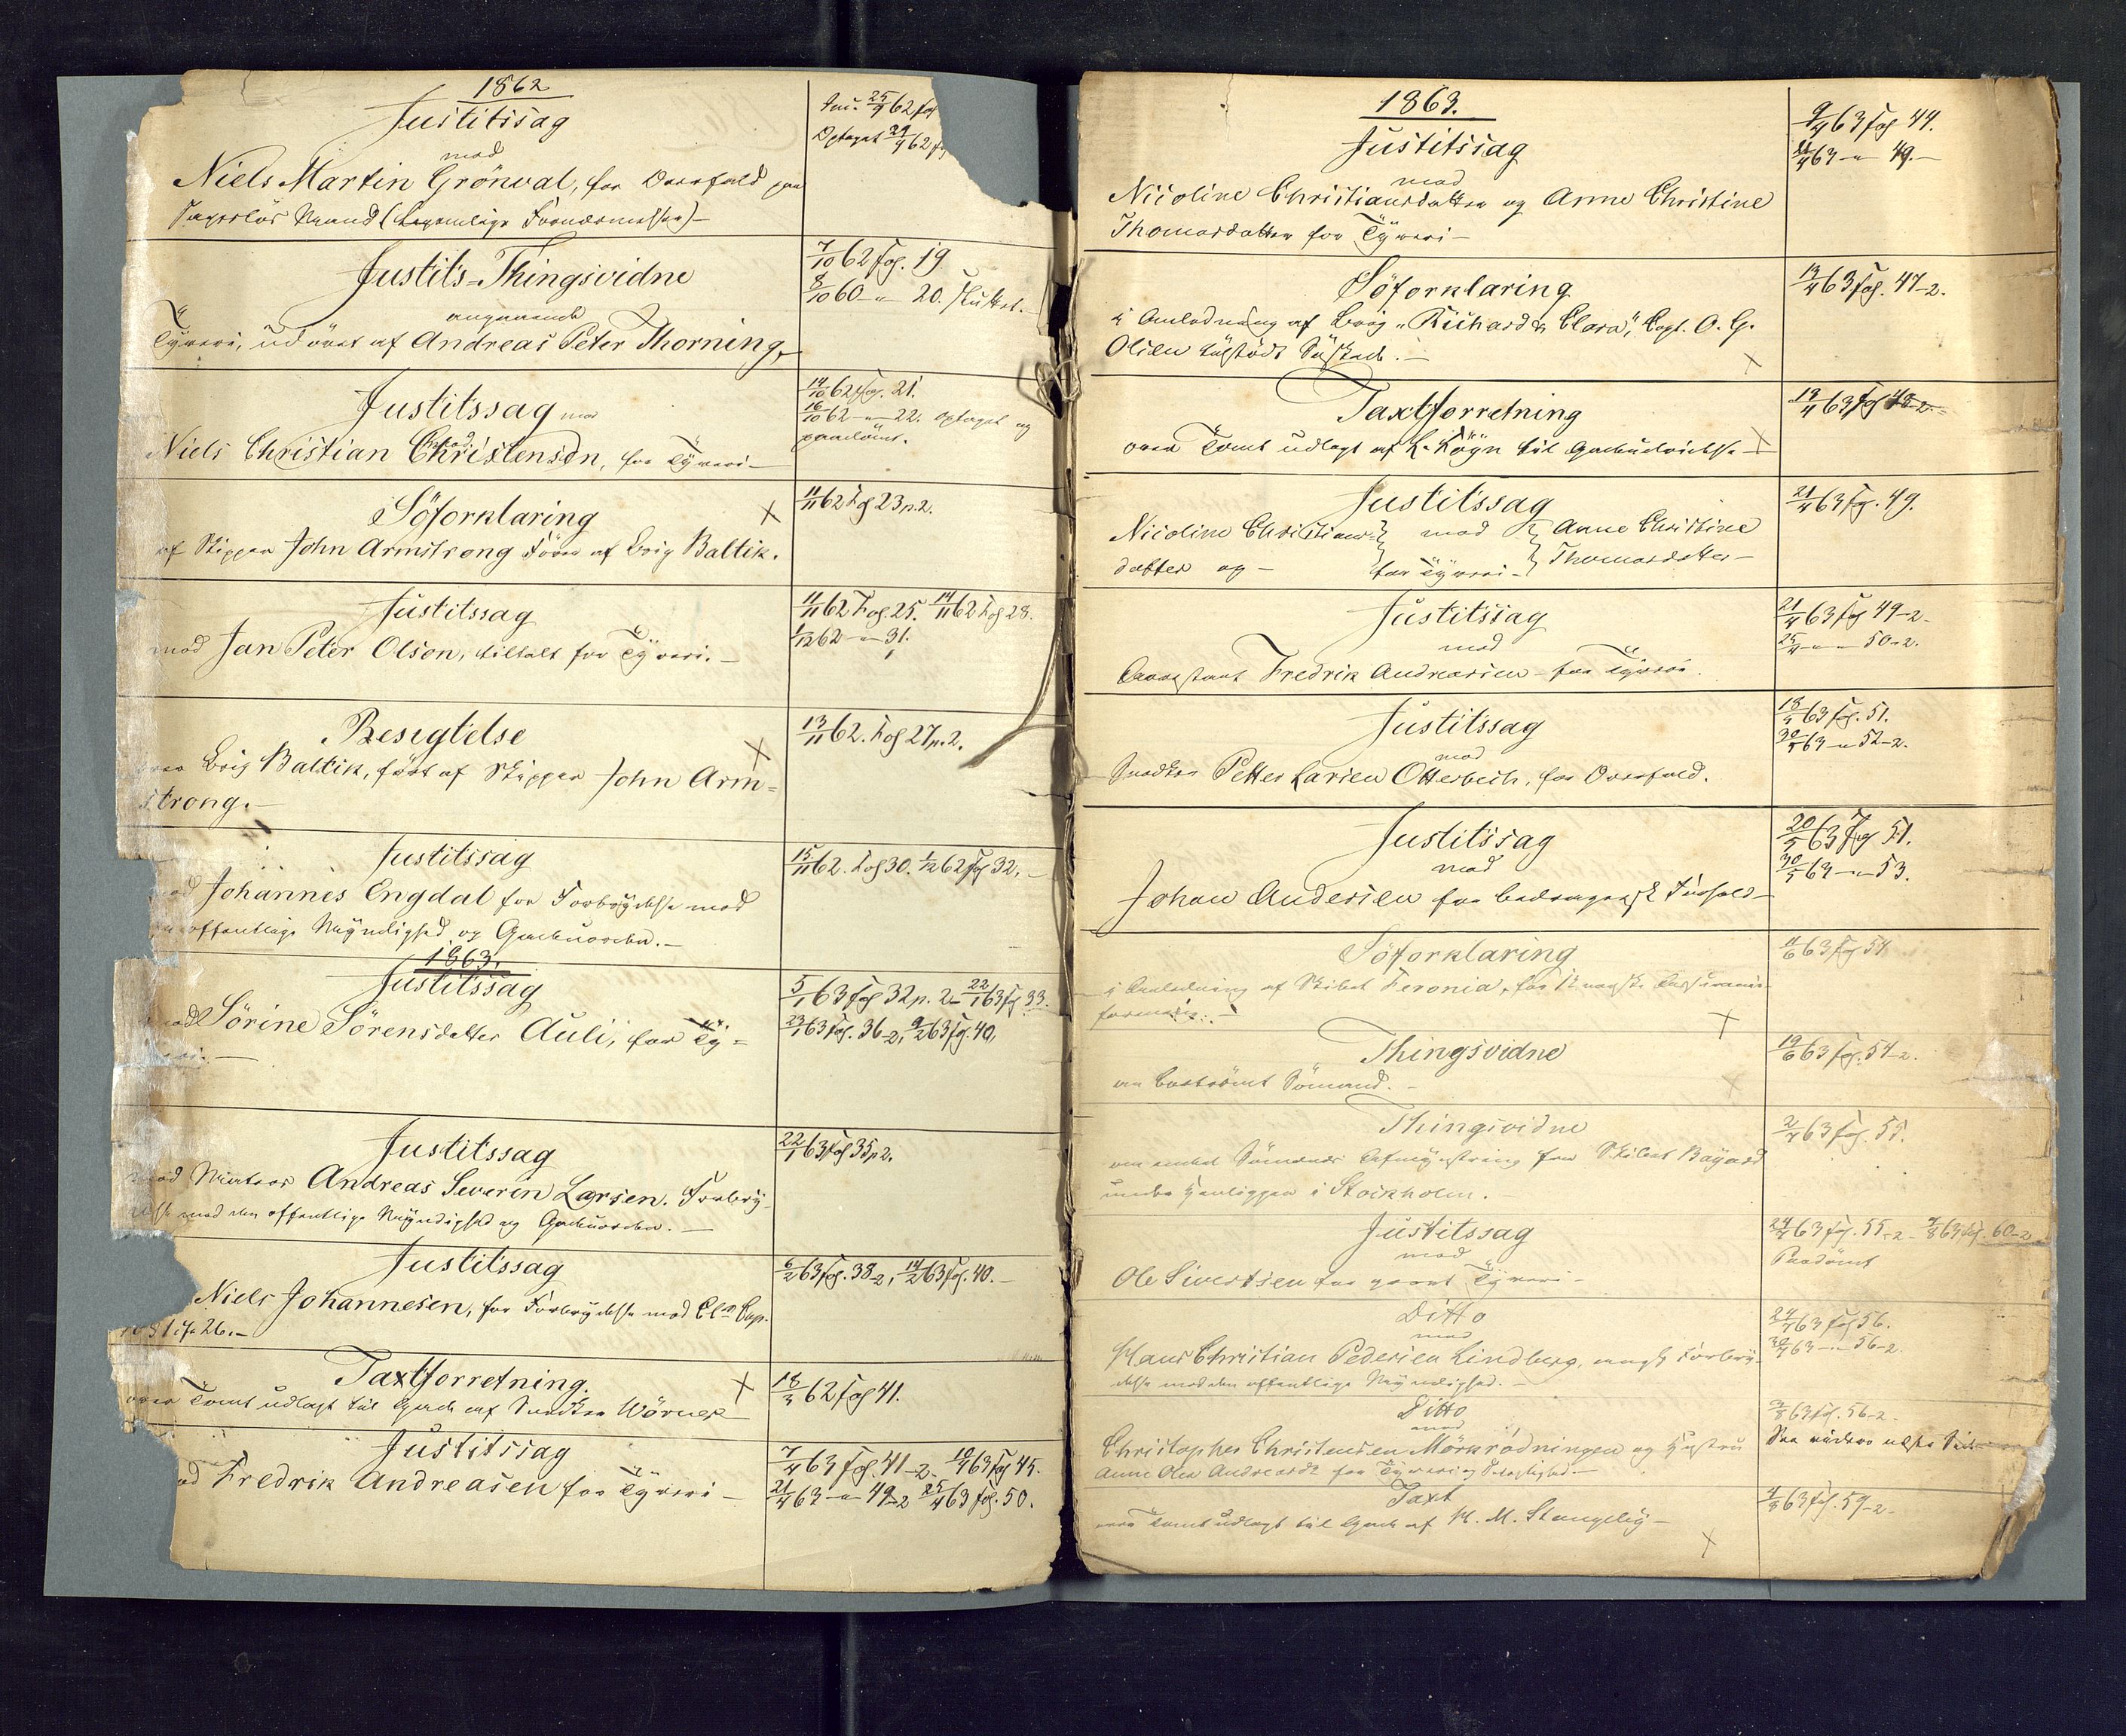 1862
Justitssag
mod
Niels Martin Grönval, for Overfald paa
sageslös Mand (Legemlige Fornærmelser) –
Int. 25/9 62 fol
Optaget 29/9 62 f
Justits-Thingsvidne
angaaende
Tyveri, udövet af Andreas Peter Thorning,
7/10 62 Fol. 19
8/10 60 – " – 20. sluttet.
Justitssag mod
Niels Christian Christensön, for Tyveri –
14/10 62 Fol. 21.
16/10 62 – " – 22. optaget og
paadömt.
Söforklaring
af Skipper John Armstrong Förer af Brig Baltik.
X
11/11 62 Fol 23 p. 2.
Justitssag
mod Jan Peter Olson, tiltalt for Tyveri. –
11/11 62 Fol. 25. 14/11 62 Fol 28.
1/12 62 – " – 31.
Besigtelse
over Brig Baltik, fört af Skipper John Arm=
strong. –
X
13/11 62. Fol 27 p. 2.
Justitssag
mod Johannes Engdal for Forbrydelse mod
offentlige Myndighed og Gadeuorden. –
15/11 62. Fol 30. 1/12 62 Fol 32. –
1863.
Justitssag
mod Sörine Sörensdatter Auli, for Ty=
veri. –
5/1 63 Fol 32 p. 2 – 22/1 63 Fol 33.
23/1 63 Fol. 36–2, 9/2 63 Fol. 40,
Justitssag
mod Matros Andreas Severin Larsen. Forbry
delse mod den offentlige Myndighed og Gadeuorden. –
22/1 63 Fol 35 p 2.
Justitssag
Niels Johannesen, for Forbrydelse mod Cln Cap.
10 § 1 cfr 26. –
6/2 63 Fol. 38–2, 14/2 63 Fol. 40. –
Taxtforretning.
over Tomt udlagt til Gade af Snedker Wörner
X
18/3 62 Fol 41.
Justitssag
mod Fredrik Andreasen for Tyveri –
7/4 63 Fol. 41–2. 10/4 63 Fol 45.
21/4 63 – " – 49–2 25/4 63 Fol. 50.
1863.
Justitssag
mod
Nicoline Christiansdatter og Anne Christine
Thomasdatter for Tyveri –
9/4 63 Fol 44.
21/4 63 – " – 49. –
Söforklaring
i Anledning af Brig "Richard & Clara", Capt. O. G.
Olsen tilstödt Söskade. –
X
13/4 63 Fol. 47–2.
Taxtforretning
over Tomt udlagt af L. Högn til Gadeudvidelse –
X
13/4 63 Fol 48–2. –
Justitssag
Nicoline Christians= } mod { Anne Christine
datter og – } for Tyveri – } Thomasdatter –
21/4 63 Fol. 49.
Justitssag
mod
Arrestant Fredrik Andreasen – for Tyveri.
21/4 63 Fol 49–2.
25/4 – " – 50–2.
Justitssag
mod
Snedker Petter Larsen Otterbech, for Overfald.
18/5 63 Fol. 51.
30/5 63 – " 52–2.
Justitssag
mod
Johan Andersen for bedragersk Forhold –
20/5 63 Fol 51.
30/5 63 – " – 53.
Söforklaring
i Anledning af Skibet Feronia, for Norske Assurance
foreninger. –
X
11/6 63 Fol 54
Thingsvidne
om bortrömt Sömand. –
X
19/6 63 Fol. 54–2.
Thingsvidne
om endel Sömænds Afmynstring fra Skibet Bayard
under Henliggen i Stockholm. –
2/7 63 Fol. 55.
Justitssag
mod
Ole Sivertsen for grovt Tyveri –
24/7 63 Fol. 55–2 – 7/8 63 Fol. 60–2
Paadömt
Ditto
mod
Hans Christian Pedersen Lindberg, angl. Forbry
delse mod den offentlige Myndighed. –
24/7 63 Fol 56.
30/7 63 – " – 56–2.
Ditto
mod
Christopher Christensen Mörkrödningen og Hustru
Anne Olea Andreasdr for Tyveri og Delagtighed –
3/8 63 Fol. 56–2.
See videre næste Side
Taxt
over Tomt udlagt til Gade af H. M. Stangeby –
X
4/8 63 Fol. 59–2.